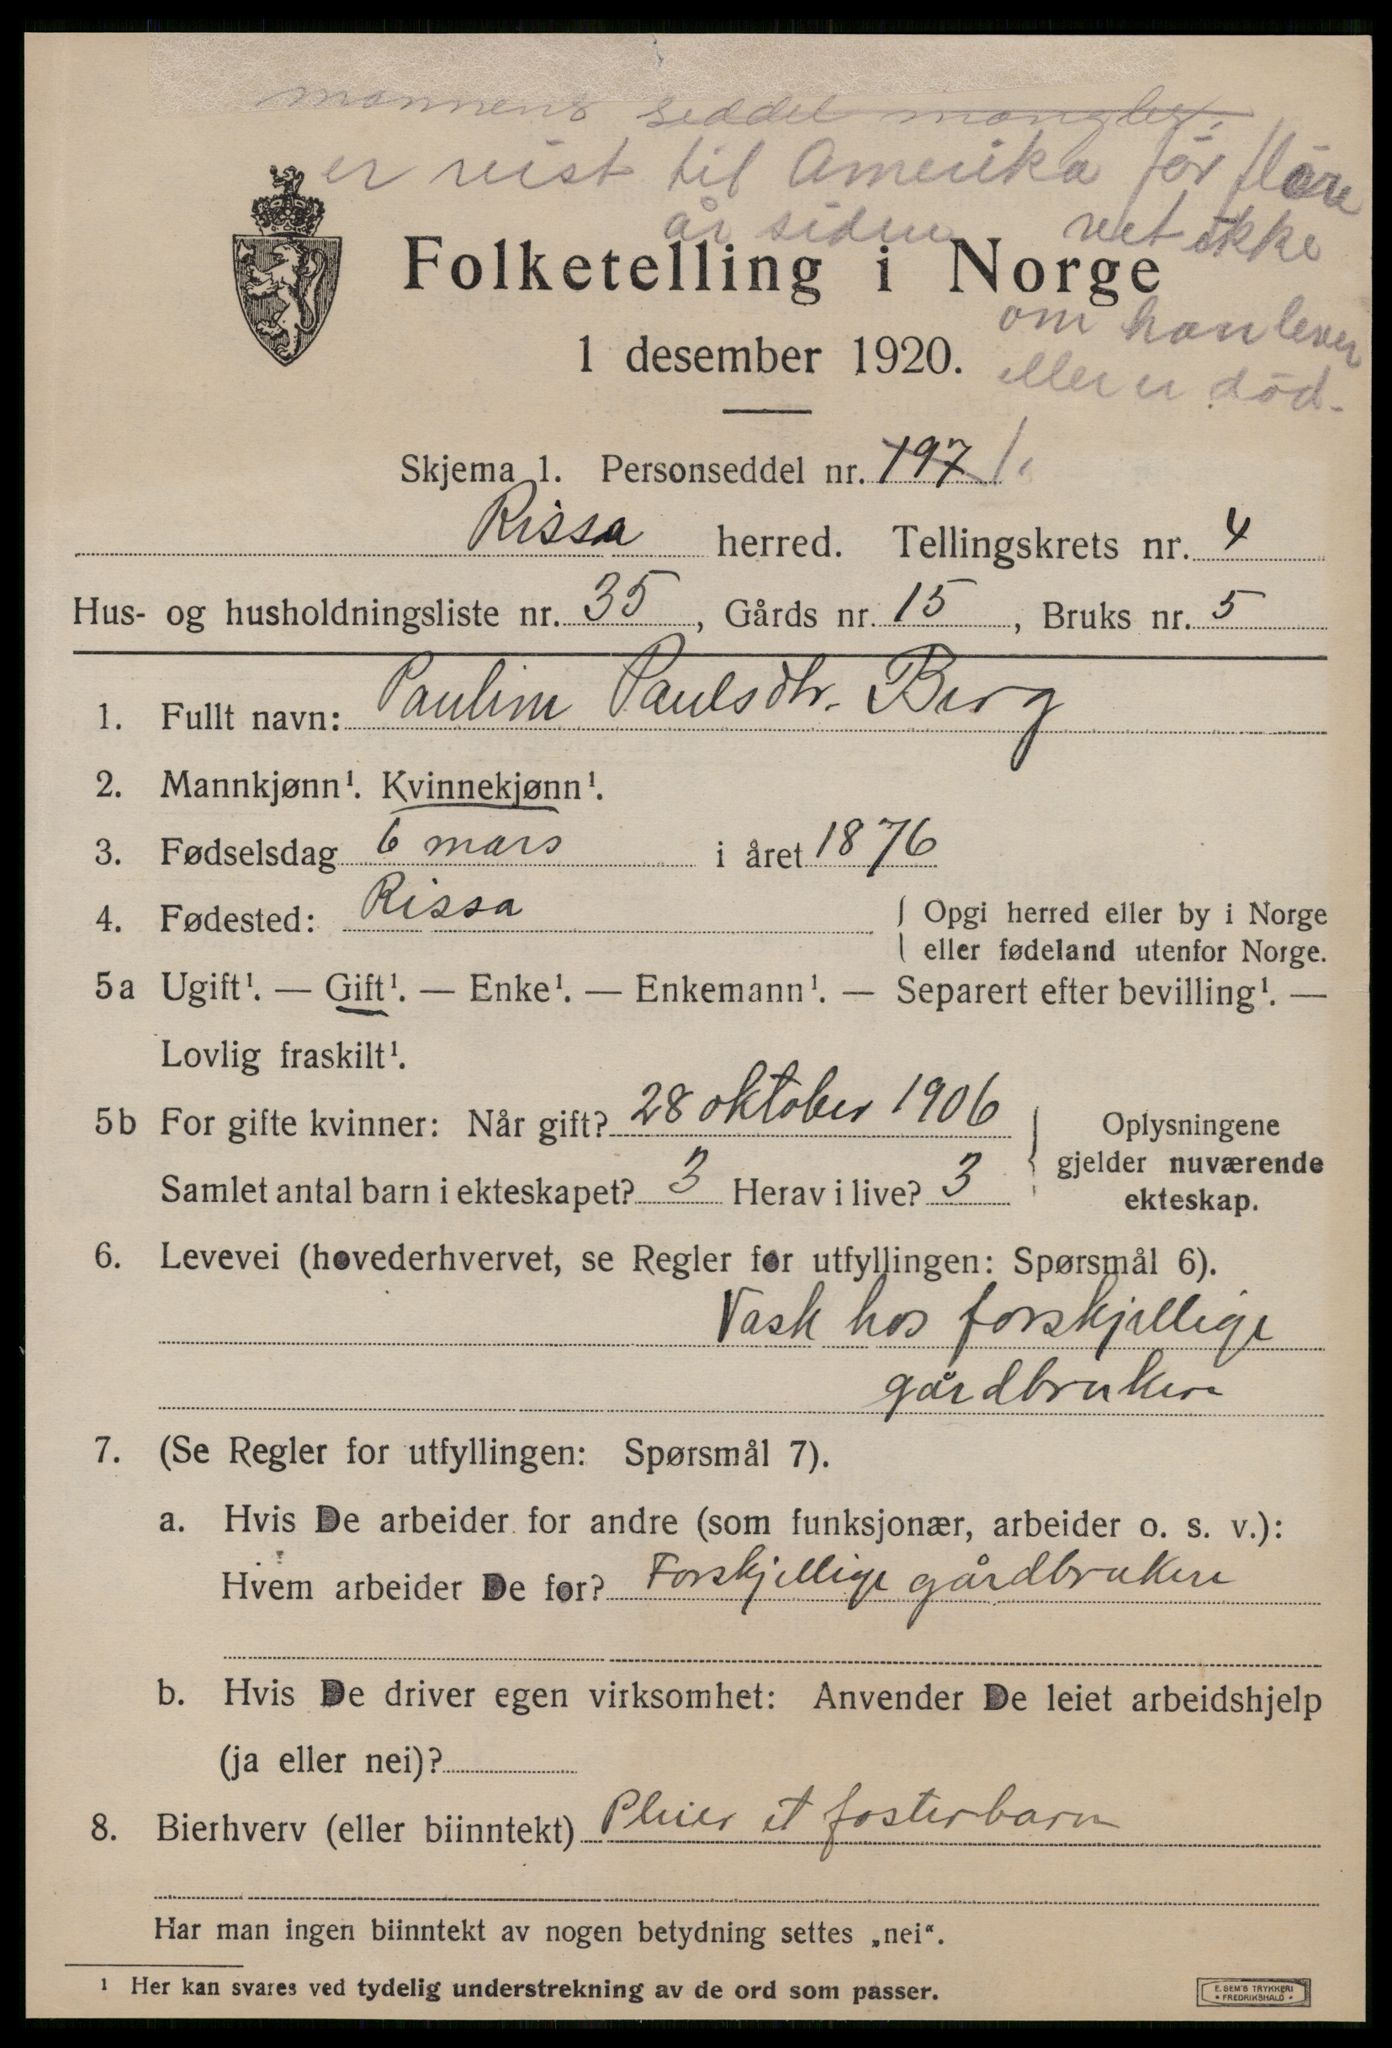 mannens seddel mangler.
er reist til Amerika før flere
år siden vet ikke
om han lever
eller er död.
Folketelling i Norge
1 desember 1920.
Skjema 1. Personseddel nr. 197 1.
Rissa herred. Tellingskrets nr. 4
Hus- og husholdningsliste nr. 35, Gårds nr. 15, Bruks nr. 5
1. Fullt navn: Pauline Paulsdtr. Berg
2. Mannkjønn¹. Kvinnekjønn¹.
3. Fødselsdag 6 mars i året 1876
4. Fødested: Rissa { Opgi herred eller by i Norge
eller fødeland utenfor Norge.
5a Ugift¹. — Gift¹. — Enke¹. — Enkemann¹. — Separert efter bevilling¹. —
Lovlig fraskilt¹.
5b For gifte kvinner: Når gift? 28 oktober 1906
Samlet antal barn i ekteskapet? 3 Herav i live? 3
{ Oplysningene
gjelder nuværende
ekteskap.
6. Levevei (hovederhvervet, se Regler for utfyllingen: Spørsmål 6).
Vask hos forskjellige
gårdbrukere
7. (Se Regler for utfyllingen: Spørsmål 7).
a. Hvis De arbeider for andre (som funksjonær, arbeider o. s. v.):
Hvem arbeider De for? Forskjellige gårdbrukere
b. Hvis De driver egen virksomhet: Anvender De leiet arbeidshjelp
(ja eller nei)?
8. Bierhverv (eller biinntekt) Pleier et fosterbarn
Har man ingen biinntekt av nogen betydning settes „nei“.
¹ Her kan svares ved tydelig understrekning av de ord som passer.
E. SEM'S TRYKKERI
* FREDRIKSHALD *